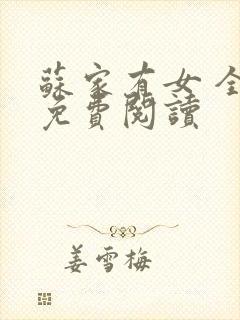 蘇家有女 全
免費閱讀
姜雪梅